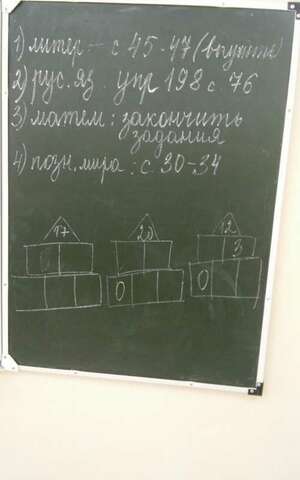 1) литер – с 45-47 (выучить)
2) рус. яз. упр 198 с. 76
3) матем: закончить
задания
4) позн. мира: с 30-34
17 20 12
3
0 0